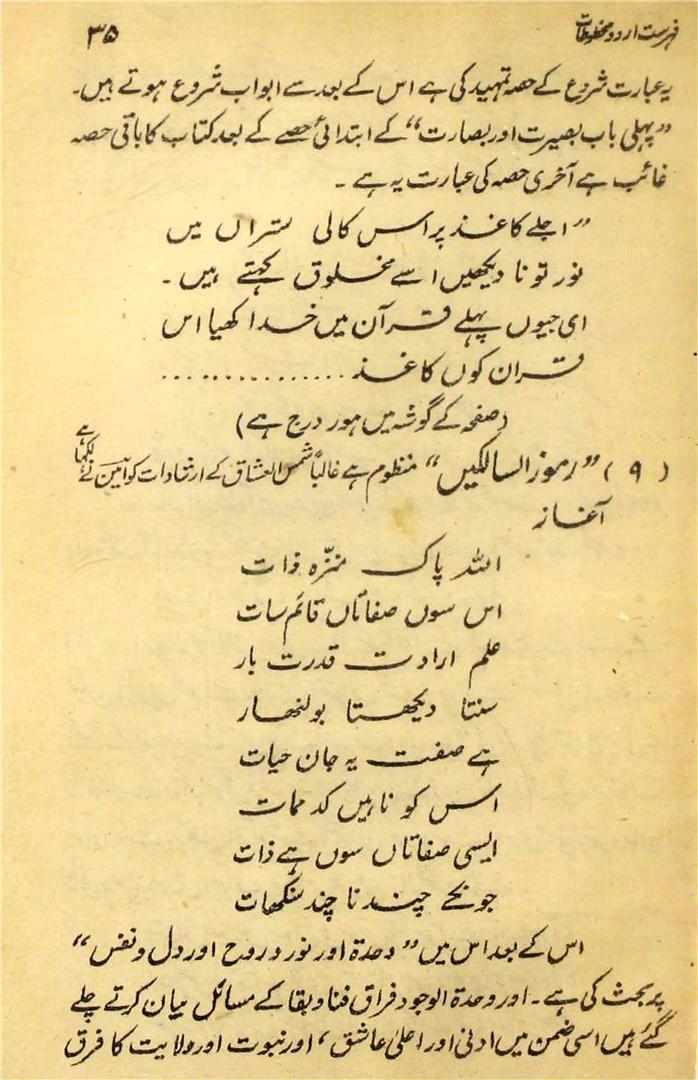 فہرست اردو مخطوطات ۳۵
یہ عبارت شروع کے حصہ تمہید کی ہے اس کے بعد سے ابواب شروع ہوتے ہیں۔
”پہلی باب بصیرت اور بصارت“ کے ابتدائی حصے کے بعد کتاب کا باقی حصہ
غائب ہے آخری حصہ کی عبارت یہ ہے ۔
”اجلے کاغذ پر اس کالی ستراں میں
نور تو نا دیکھیں اسے مخلوق کہتے ہیں ۔
ای جیوں پہلے قرآن میں خدا کھیا اس
قران کوں کاغذ ...............
(صفحہ کے گوشہ میں ہور درج ہے)
(۹) ”رموز السالکیں“ منظوم ہے غالباً شمس العشاق کے ارشادات کو امین نے لکھا ہے
آغاز
اللہ پاک منزّہ ذات
اس سوں صفاتاں قائم سات
علم ارادت قدرت بار
سنتا دیکھتا بولنھار
ہے صفت یہ جان حیات
اس کو ناہیں کد ممات
ایسی صفاتاں سوں ہے ذات
جونکے چند نا چند سنگھات
اس کے بعد اس میں ”وحدۃ اور نور و روح اور دل و نفس“
پر بحث کی ہے ۔ اور وحدۃ الوجود فراق فنا و بقا کے مسائل بیان کرتے چلے
گئے ہیں اسی ضمن میں ادنی اور اعلیٰ عاشق ، اور نبوت اور ولایت کا فرق